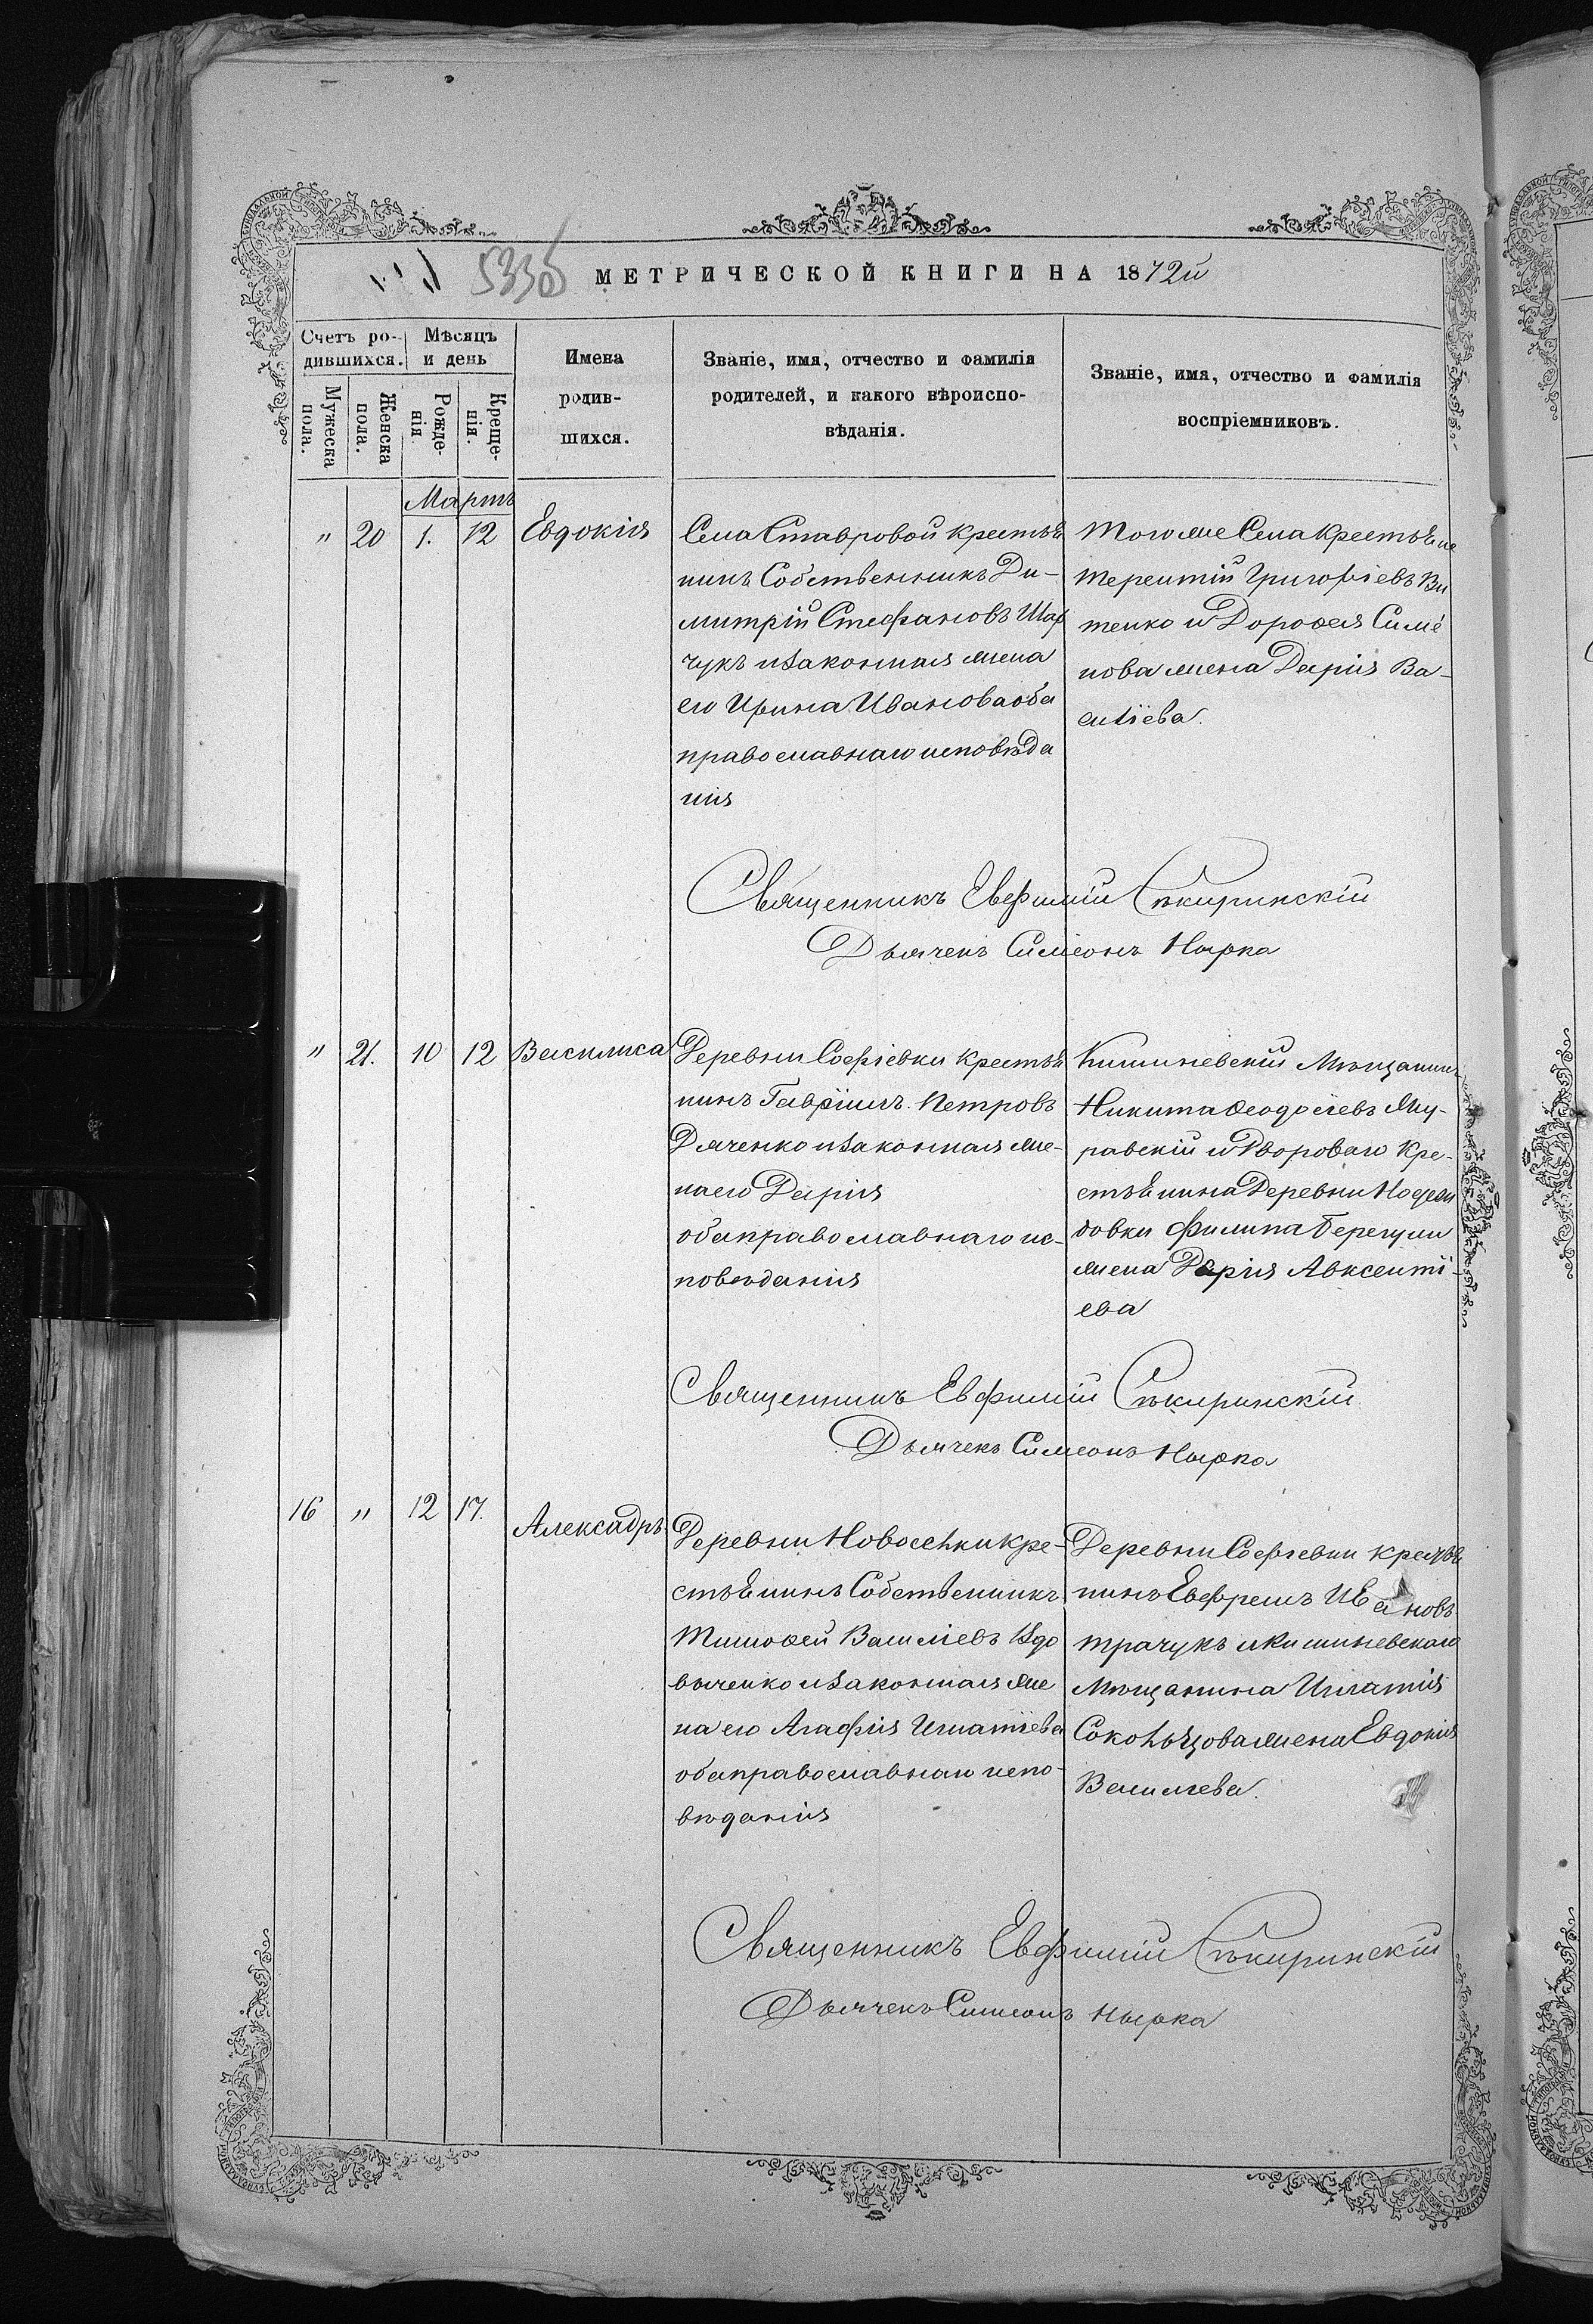 533об
МЕТРИЧЕСКОЙ КНИГИ НА 1872й
Счетъ ро-
дившихся.
Мѣсяцъ
и день
Имена
родив-
шихся.
Званіе, имя, отчество и фамилія
родителей, и какого вѣроиспо-
вѣданія.
Званіе, имя, отчество и фамилія
воспріемниковъ.
Мужеска
пола.
Женска
пола.
Рожде-
нія
Креще-
нія.
Мартъ
" 20 1. 12 Евдокія
Села Ставровой крестья
нинъ Собственникъ Ди-
митрій Стефановъ Шар
чукъ и законная жена
его Ирина Иванова оба
православнаго исповѣда
нія
Того же Села Крестьяне
Терентій Григоріевъ Ви
тенко и Дорофея Симе
нова жена Дарія Ва-
силіева.
Священникъ Евфимій Сѣкиринскій
Дьячекъ Симеонъ Нырка
" 21. 10 12 Василиса
Деревни Софіевки крестья
нинъ Гавріилъ Петровъ
Дяченко и законная же-
на его Дарія
оба православнаго ис-
повѣданія
Кишиневскій Мѣщанинъ
Никита Ѳеодосіевъ Му-
равскій и Двороваго кре-
стьянина Деревни
довки Филипа
жена Дарія Авксенті-
ева
Священникъ Евфимій Сѣкиринскій
Дьячекъ Симеонъ Нырка
16 " 12 17. Алексадръ
Деревни Новоселки кре-
стьянинъ Собственникъ
Тимофей Василіевъ Вдо
виченко и законная же
на его Агафія Игнатіева
оба православнаго испо-
вѣданія
Деревни Софіевки крестья
нинъ Евфремъ Ивановъ
Трачукъ и Кишиневскаго
Мѣщанина Игнатія
Сокольцова жена Евдокія
Василіева.
Священникъ Евфимій Сѣкиринскій
Дьячекъ Симеонъ Нырка